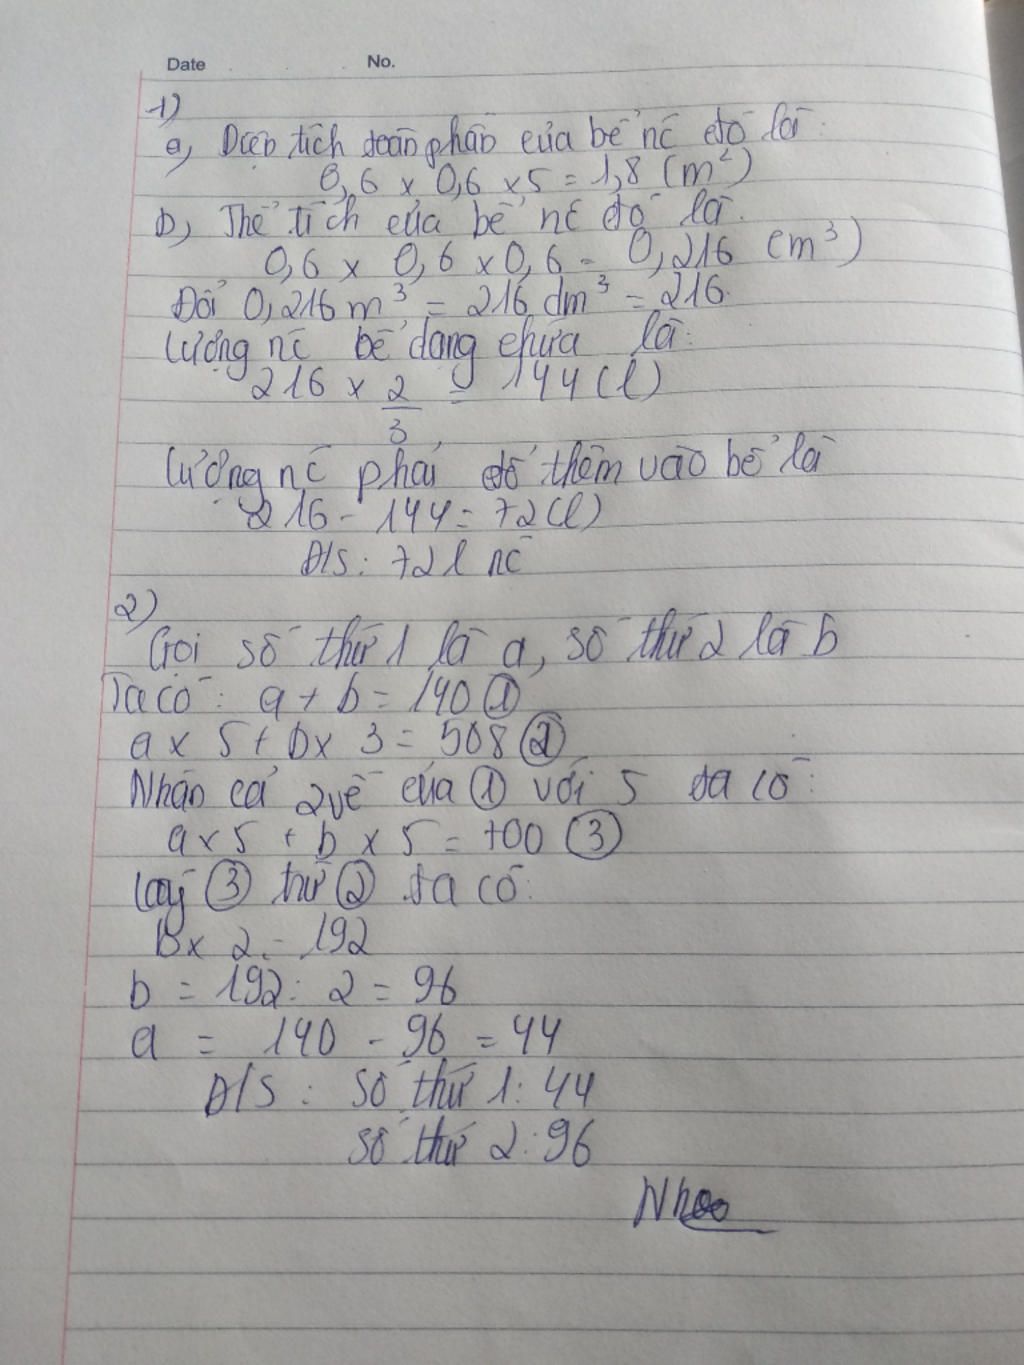 Date No.
1)
a, Diện tích toàn phần của bể nc đó là:
0,6 x 0,6 x 5 = 1,8 (m²)
b, Thể tích của bể nc đó là:
0,6 x 0,6 x 0,6 = 0,216 (m³)
Đổi 0,216 m³ = 216 dm³ = 216
Lượng nc bể đang chứa là:
216 x 2/3 = 144 (l)
Lượng nc phải đổ thêm vào bể là
216 - 144 = 72 (l)
Đ/S: 72 l nc
2)
Gọi số thứ 1 là a, số thứ 2 là b
Ta có: a + b = 140 ①
a x 5 + b x 3 = 508 ②
Nhân cả 2 vế của ① với 5 ta có:
a x 5 + b x 5 = 700 ③
Lấy ③ trừ ② ta có:
B x 2 = 192
b = 192 : 2 = 96
a = 140 - 96 = 44
Đ/S: Số thứ 1: 44
số thứ 2: 96